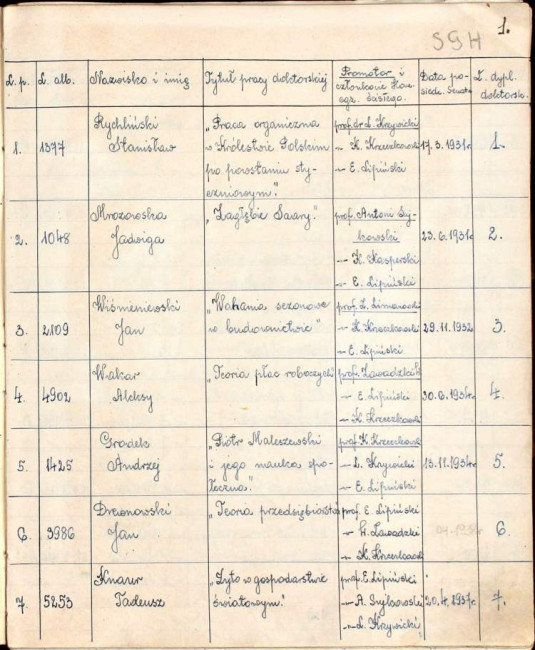 SGH
1.
L. p. L. alb. Nazwisko i imię Tytuł pracy doktorskiej Promotor i członkowie Kom. egz. ścisłego. Data posiedz. Senatu L. dypl. doktorsk.
1. 1377 Rychliński Stanisław „Praca organiczna w Królestwie Polskim po powstaniu styczniowym." prof. dr L. Krzywicki
„ K. Krzeczkowski
„ E. Lipiński
17.3.1931r. 1.
2. 1048 Mrozowska Jadwiga „Zagłębie Saary." prof. Antoni Sujkowski
„ K. Kasperski
„ E. Lipiński
23.6.1931r. 2.
3. 2109 Wiśniewski Jan „Wahania sezonowe w budownictwie" prof. L.
„ K. Krzeczkowski
„ E. Lipiński
29.11.1932 3.
4. 4902 Wakar Aleksy „Teoria płac roboczych" prof. Zawadzki
„ E. Lipiński
„ K. Krzeczkowski
30.6.1934r. 4.
5. 1425 Grodek Andrzej „Piotr Maleszewski i jego nauka społeczna." prof. K. Krzeczkowski
„ L. Krzywicki
„ E. Lipiński
13.11.1934r. 5.
6. 3986 Drewnowski Jan „Teoria przedsiębiorstwa prof. E. Lipiński
„ W. Zawadzki
„ K. Krzeczkowski
6.
7. 5253 Knauer Tadeusz „Żyto w gospodarstwie światowym." prof. E. Lipiński
„ A. Sujkowski
„ L. Krzywicki
20.4.1937r. 7.